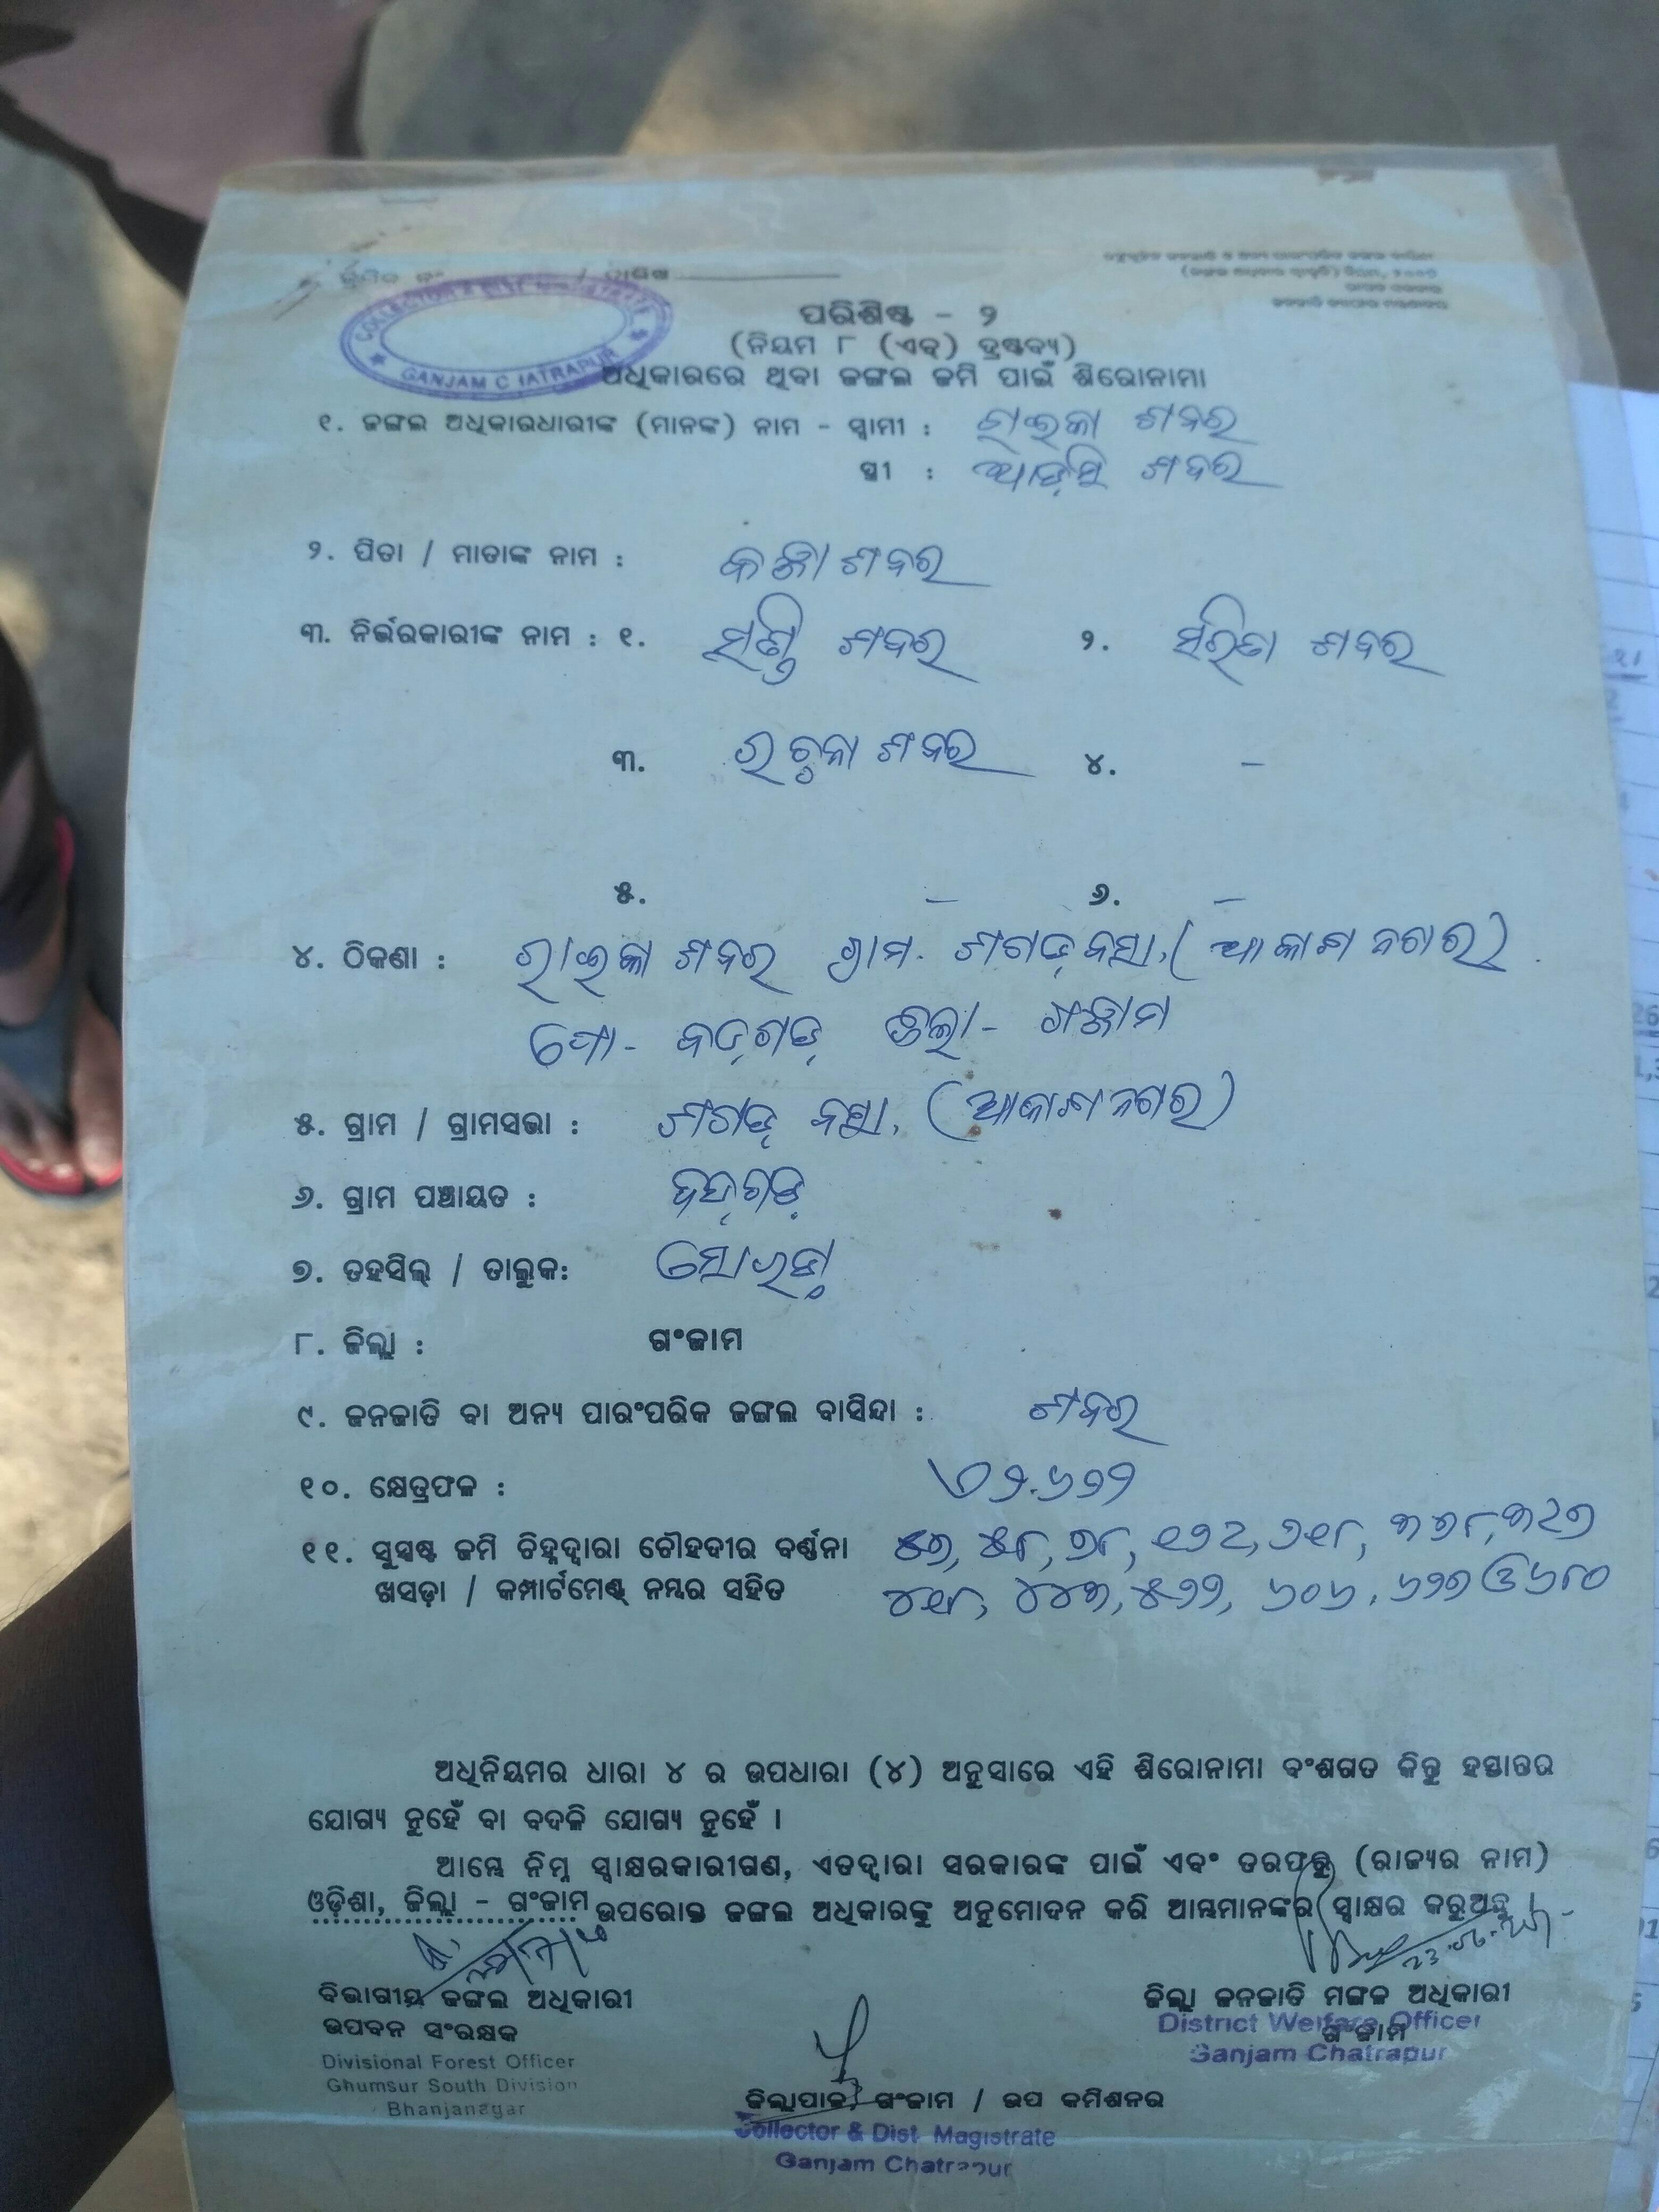 କ୍ରମିକ ନଂ / ତାରିଖ
COLLECTOR & DIST MAGISTRATE
GANJAM CHATRAPUR
ପରିଶିଷ୍ଟ - ୨
(ନିୟମ ୮ (ଏକ) ଦ୍ରଷ୍ଟବ୍ୟ)
ଅଧିକାରରେ ଥିବା ଜଙ୍ଗଲ ଜମି ପାଇଁ ଶିରୋନାମା
୧. ଜଙ୍ଗଲ ଅଧିକାରଧାରୀଙ୍କ (ମାନଙ୍କ) ନାମ - ସ୍ୱାମୀ : ରାଇକା ଶବର
ସ୍ତ୍ରୀ : ଶବର
୨. ପିତା / ମାତାଙ୍କ ନାମ : ଶବର
୩. ନିର୍ଭରକାରୀଙ୍କ ନାମ : ୧. ଶବର ୨. ସରିତା ଶବର
୩. ରଚନା ଶବର ୪. -
୫. - ୬. -
୪. ଠିକଣା : ରାଇକା ଶବର ଗ୍ରାମ. ଶଗଡ଼ବସା, (ଆକାଶ ନଗର)
ପୋ- ବଡ଼ଗଡ଼ ଜିଲା- ଗଞ୍ଜାମ
୫. ଗ୍ରାମ / ଗ୍ରାମସଭା : ଶଗଡ଼ ବସା, (ଆକାଶନଗର)
୬. ଗ୍ରାମ ପଞ୍ଚାୟତ : ବଡ଼ଗଡ଼
୭. ତହସିଲ୍ / ତାଲୁକ: ସୋରଡ଼ା
୮. ଜିଲ୍ଲା : ଗଂଜାମ
୯. ଜନଜାତି ବା ଅନ୍ୟ ପାରଂପରିକ ଜଙ୍ଗଲ ବାସିନ୍ଦା : ଶବର
୧୦. କ୍ଷେତ୍ରଫଳ : ୨.୬୭୨
୧୧. ସୁସ୍ପଷ୍ଟ ଜମି ଚିହ୍ନଦ୍ୱାରା ଚୌହଦୀର ବର୍ଣ୍ଣନା ୫୮, ୭୮,
ଖସଡ଼ା / କମ୍ପାର୍ଟମେଣ୍ଟ୍ ନମ୍ବର ସହିତ ୪୪୩, ୫୭୨, ୬୦୬, ୬୨୭ ଓ ୬୮୦
ଅଧିନିୟମର ଧାରା ୪ ର ଉପଧାରା (୪) ଅନୁସାରେ ଏହି ଶିରୋନାମା ବଂଶଗତ କିନ୍ତୁ ହସ୍ତାନ୍ତର
ଯୋଗ୍ୟ ନୁହେଁ ବା ବଦଳି ଯୋଗ୍ୟ ନୁହେଁ ।
ଆମ୍ଭେ ନିମ୍ନ ସ୍ୱାକ୍ଷରକାରୀଗଣ, ଏତଦ୍ୱାରା ସରକାରଙ୍କ ପାଇଁ ଏବଂ ତରଫରୁ (ରାଜ୍ୟର ନାମ)
ଓଡ଼ିଶା, ଜିଲ୍ଲା - ଗଂଜାମ ଉପରୋକ୍ତ ଜଙ୍ଗଲ ଅଧିକାରକୁ ଅନୁମୋଦନ କରି ଆମ୍ଭମାନଙ୍କର ସ୍ୱାକ୍ଷର କରୁଅଛୁ ।
ବିଭାଗୀୟ ଜଙ୍ଗଲ ଅଧିକାରୀ
ଉପବନ ସଂରକ୍ଷକ
Divisional Forest Officer
Ghumsur South Division
Bhanjanagar
ଜିଲ୍ଲା ଜନଜାତି ମଙ୍ଗଳ ଅଧିକାରୀ
ଗଂଜାମ
District Welfare Officer
Ganjam Chatrapur
ଜିଲ୍ଲାପାଳ, ଗଂଜାମ / ଉପ କମିଶନର
Collector & Dist. Magistrate
Ganjam Chatrapur